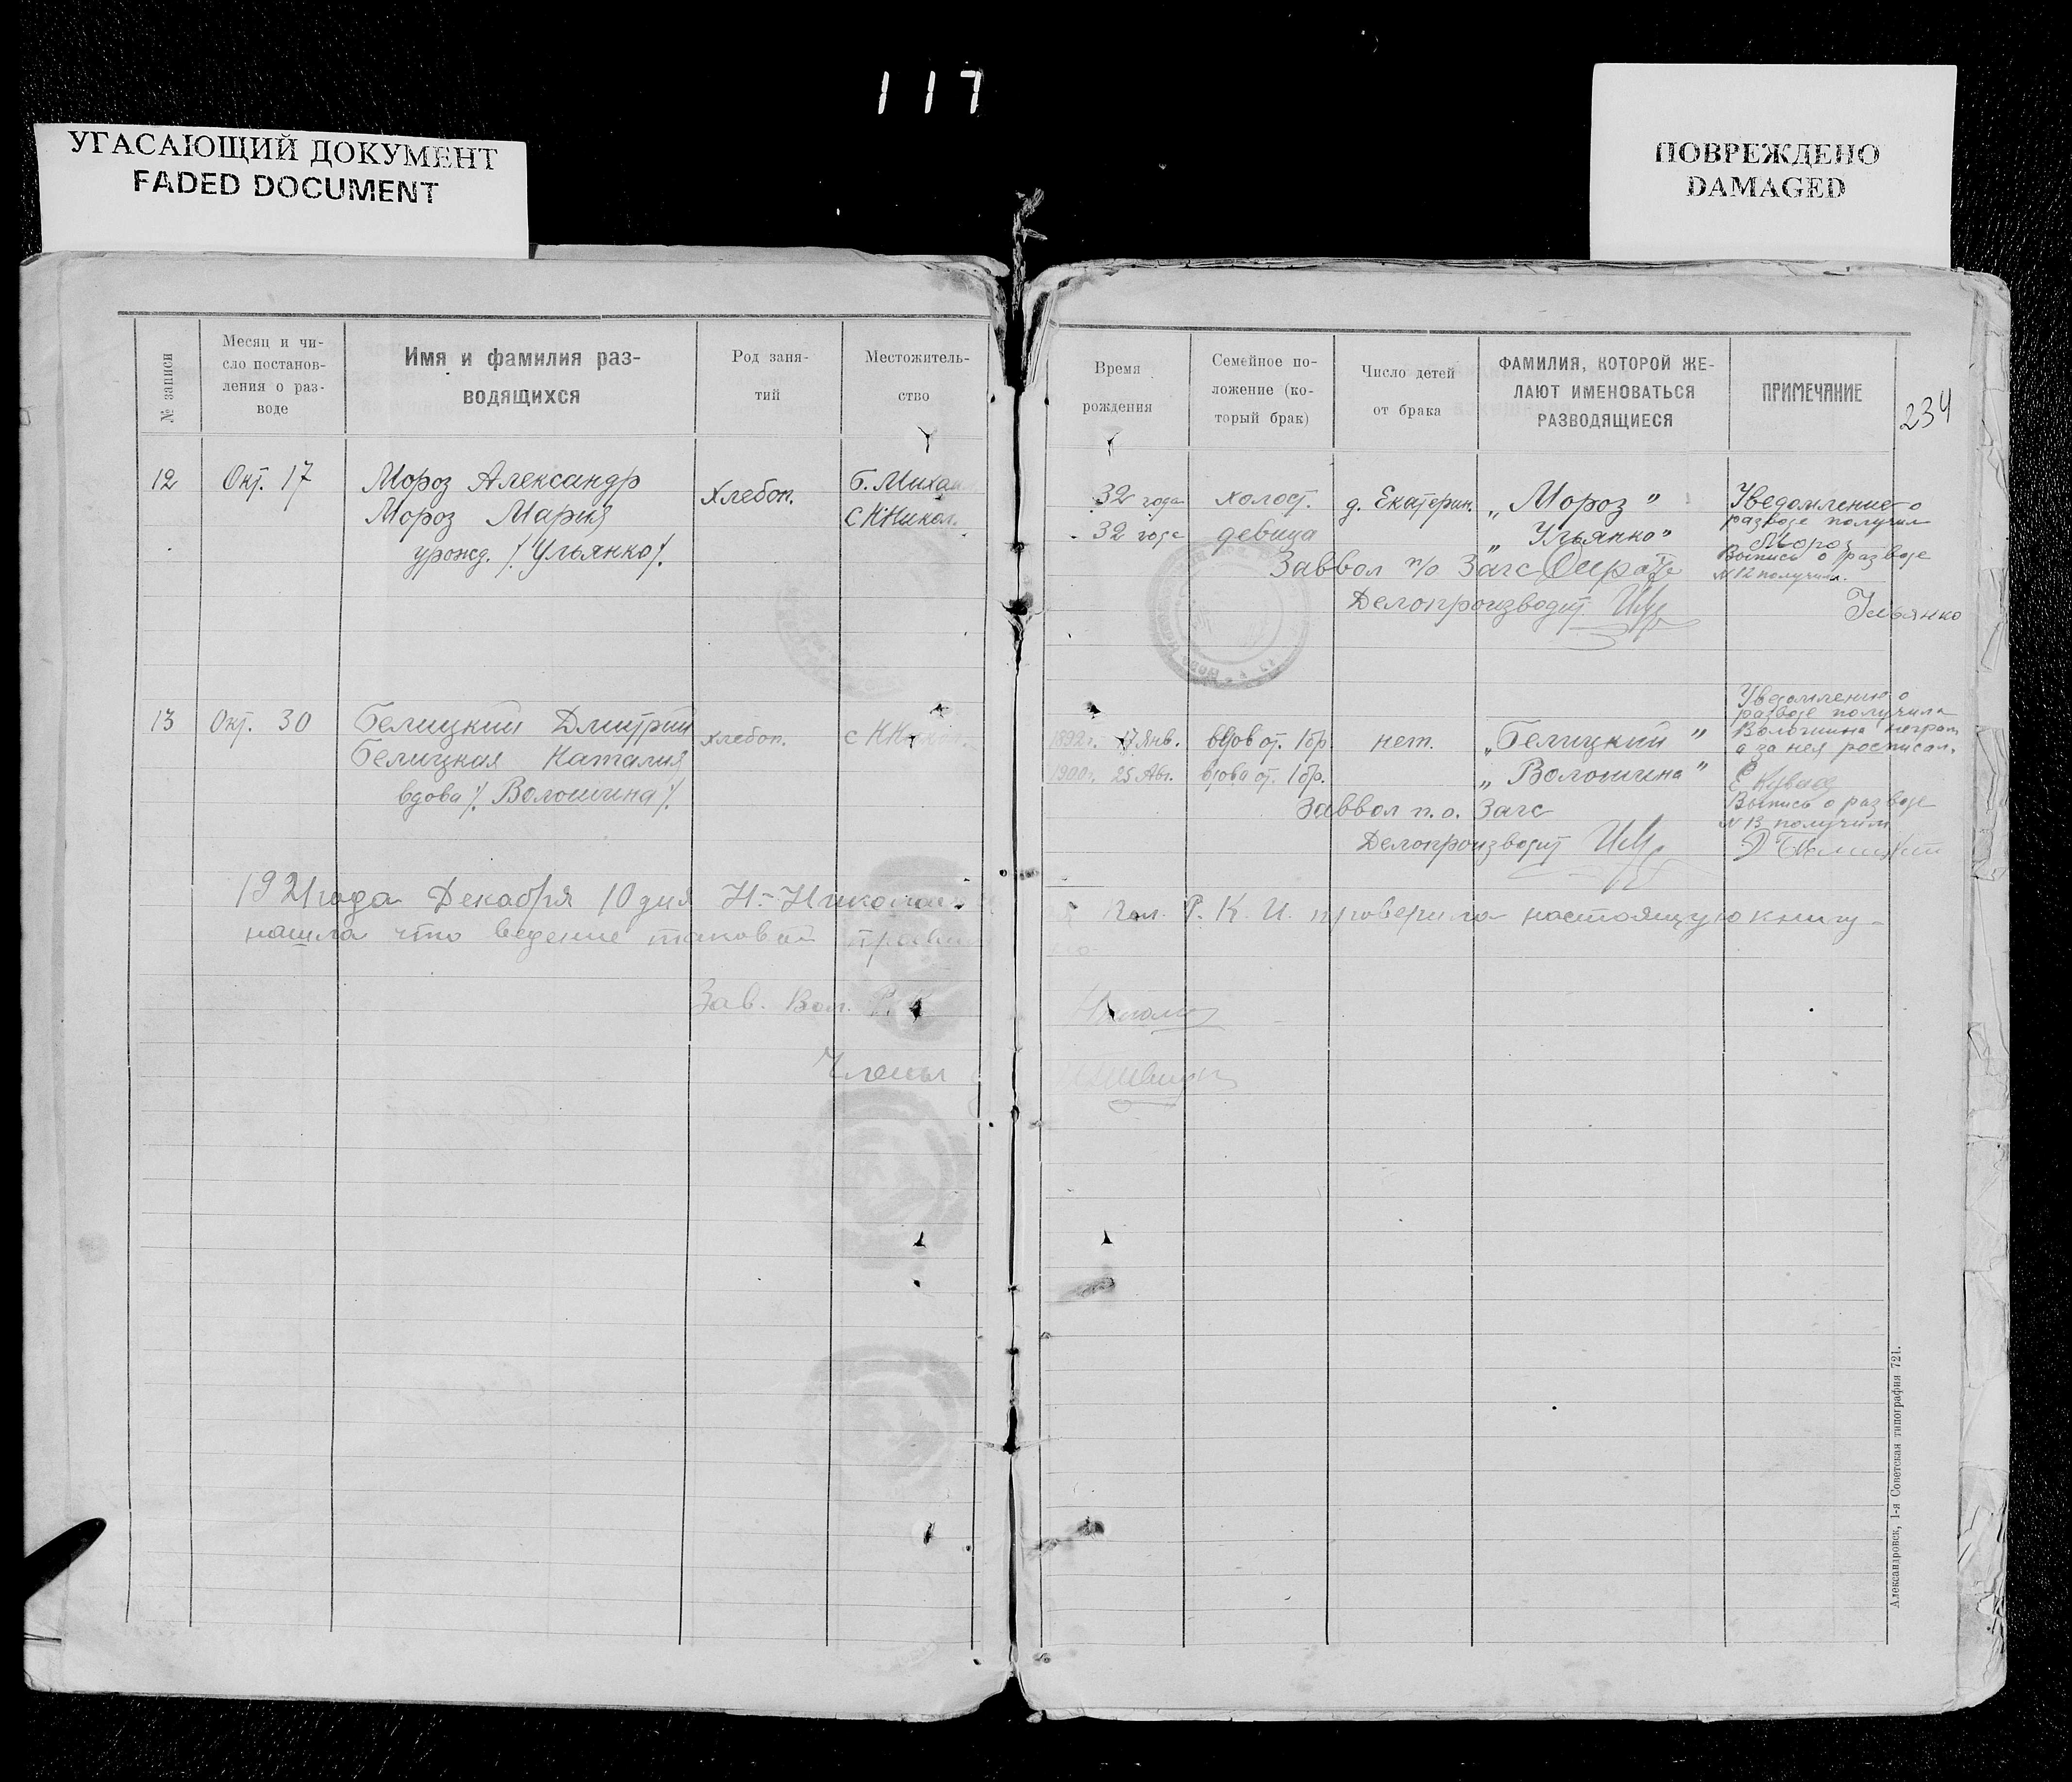 117
УГАСАЮЩИЙ ДОКУМЕНТ
FADED DOCUMENT
ПОВРЕЖДЕНО
DAMAGED
234
№ записи
Месяц и чи-
сло постанов-
ления о раз-
воде
Имя и фамилия раз-
водящихся
Род заня-
тий
Местожитель-
ство
Время
рождения
Семейное по-
ложение (ко-
торый брак)
Число детей
от брака
ФАМИЛИЯ, КОТОРОЙ ЖЕ-
ЛАЮТ ИМЕНОВАТЬСЯ
РАЗВОДЯЩИЕСЯ
ПРИМЕЧАНИЕ
12
Окт. 17
Мороз Александр
Мороз Мария
урожд. /. Ульянко /.
Хлебоп.
б. Михай
с КНикол.
32 года
32 года
холост.
девица
д. Екатерин.
„Мороз"
„Ульянко"
Заввол п/о Загс
Делопроизводит
Уведомление о
разводе получил
Мороз
Выпись о разводе
№ 12 получила.
Ульянко
13
Окт. 30
Белицкий Дмитрий
Белицкая Наталия
вдова /. Волошина /.
хлебоп.
с К
1892 г. 17 Янв.
1900 г. 25 Авг.
вдов от. 1 бр.
вдова от. 1 бр.
нет.
„Белицкий"
„Волошина"
Заввол п. о. Загс
Делопроизводит
Уведомление о
разводе получила
Волошина неграм
а за нея росписал.
Выпись о разводе
№ 13 получил
Д Белицкий
1921 года Декабря 10 дня Н-Николаев Вол. Р. К. И. проверила настоящую книгу
нашла что ведение таковой
Зав. Вол. Р. К
Члены
Александровск, 1-я Советская типография 721.